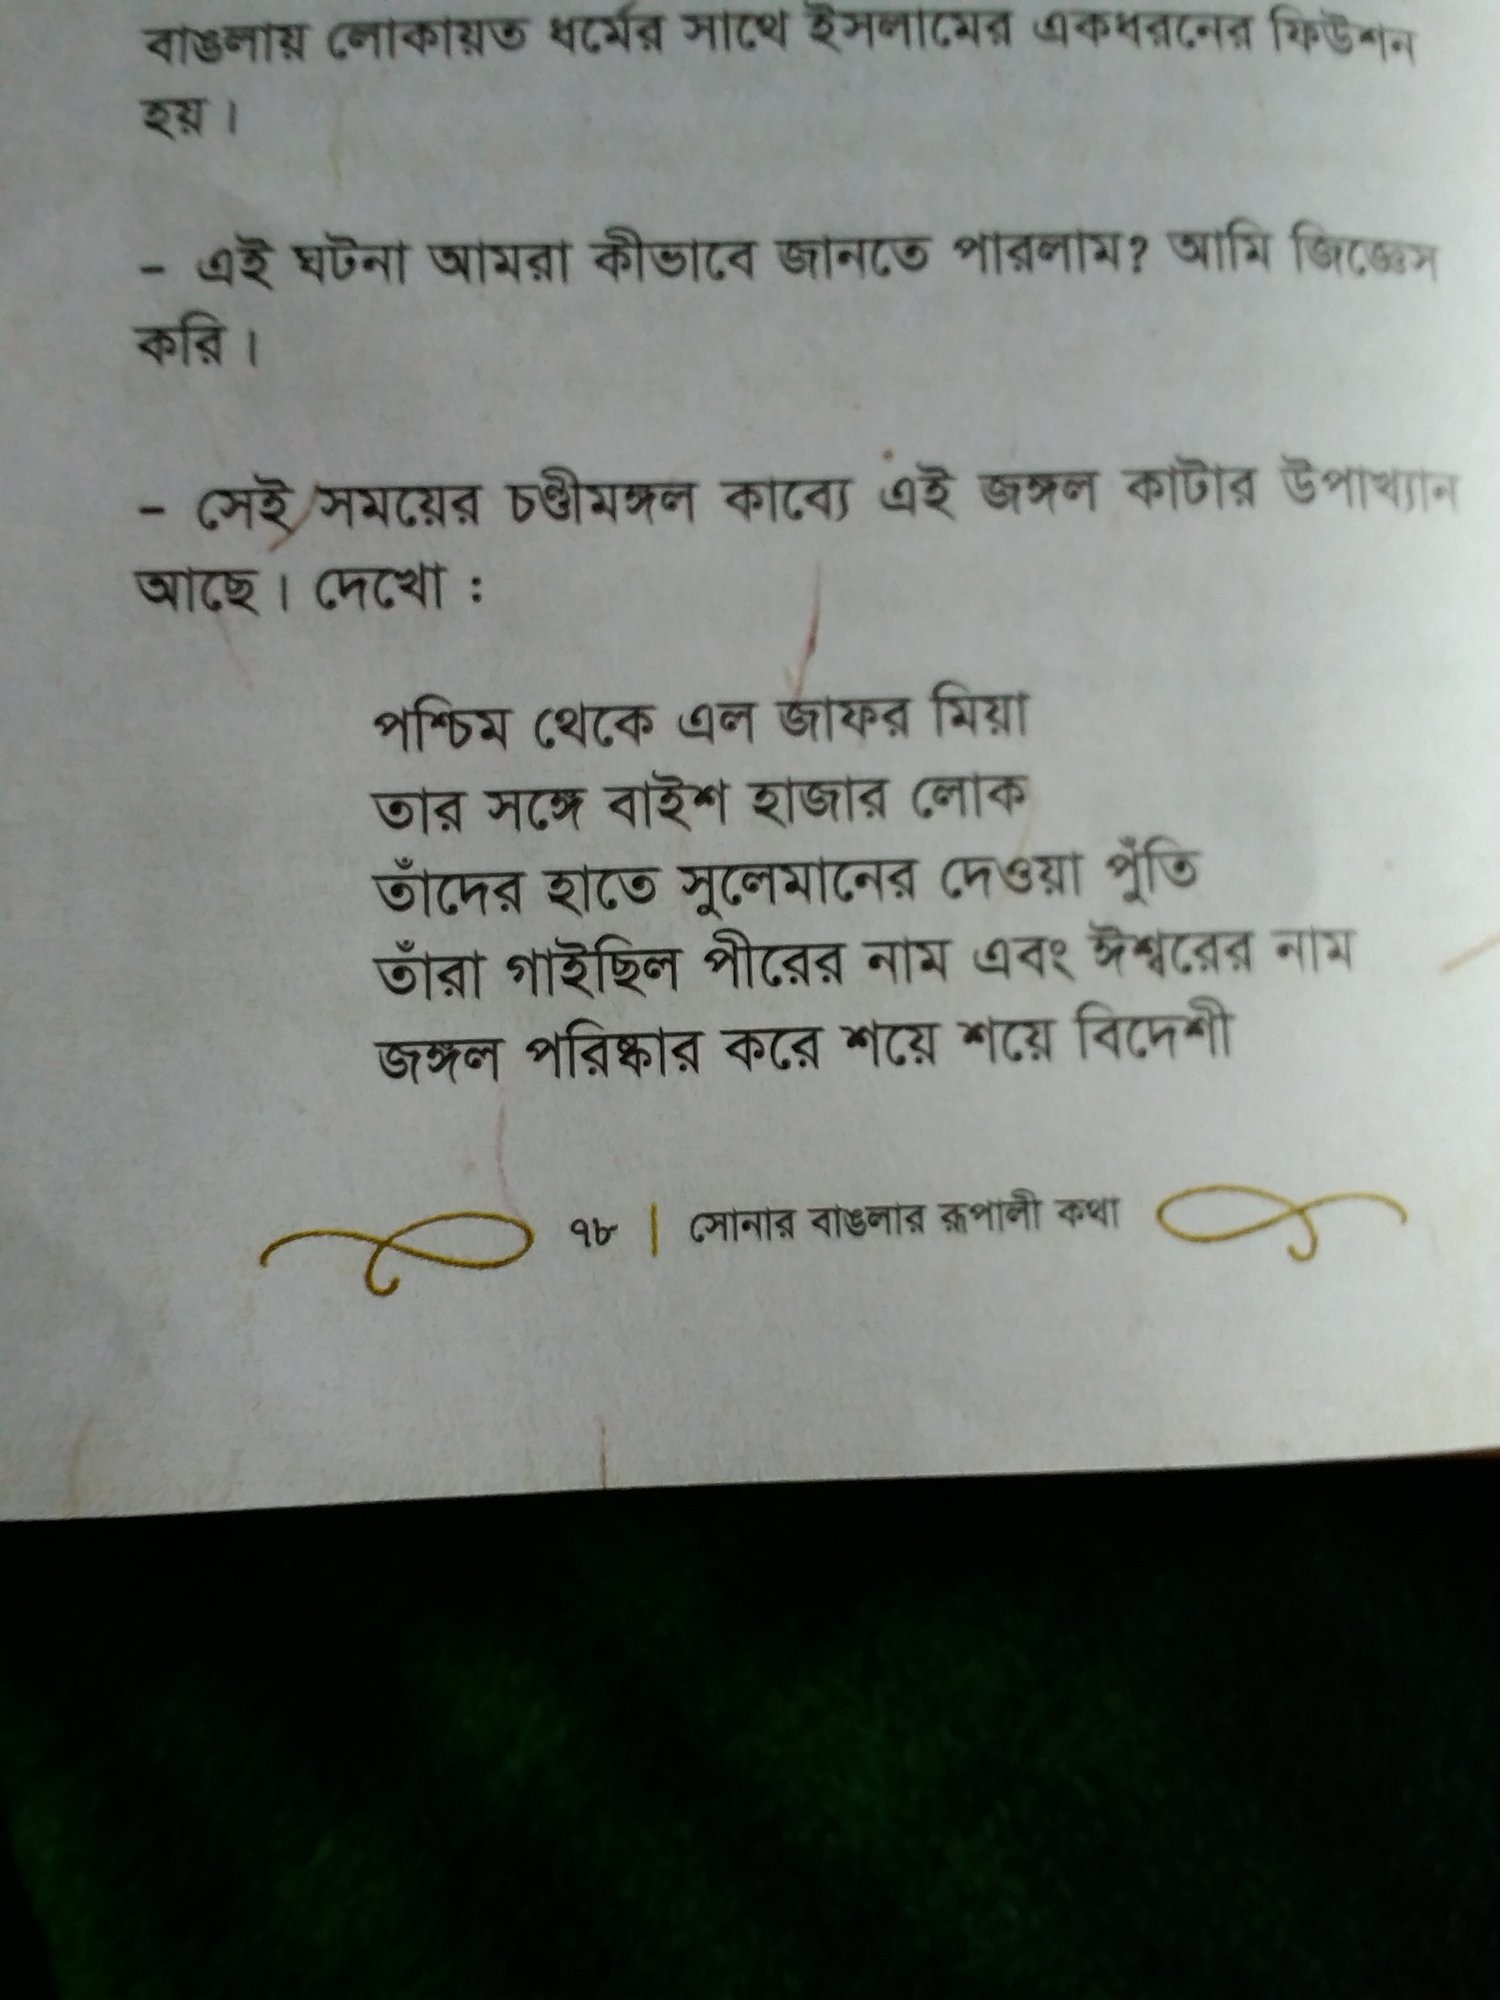 বাঙলায় লোকায়ত ধর্মের সাথে ইসলামের একধরনের ফিউশন
হয়।
- এই ঘটনা আমরা কীভাবে জানতে পারলাম? আমি জিজ্ঞেস
করি।
- সেই সময়ের চণ্ডীমঙ্গল কাব্যে এই জঙ্গল কাটার উপাখ্যান
আছে। দেখো :
পশ্চিম থেকে এল জাফর মিয়া
তার সঙ্গে বাইশ হাজার লোক
তাঁদের হাতে সুলেমানের দেওয়া পুঁতি
তাঁরা গাইছিল পীরের নাম এবং ঈশ্বরের নাম
জঙ্গল পরিষ্কার করে শয়ে শয়ে বিদেশী
৭৮ | সোনার বাঙলার রূপালী কথা